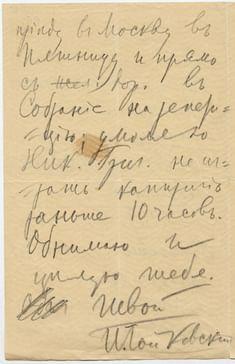 приѣду въ Москву въ
Пятницу и прямо
съ жел. дор. въ
Собраніе на репе-
тицію; умоляю
Ник. Григ. не иг-
рать каприсъ
раньше 10 часовъ.
Обнимаю и
цѣлую тебя.
твой
П. Чайковскій